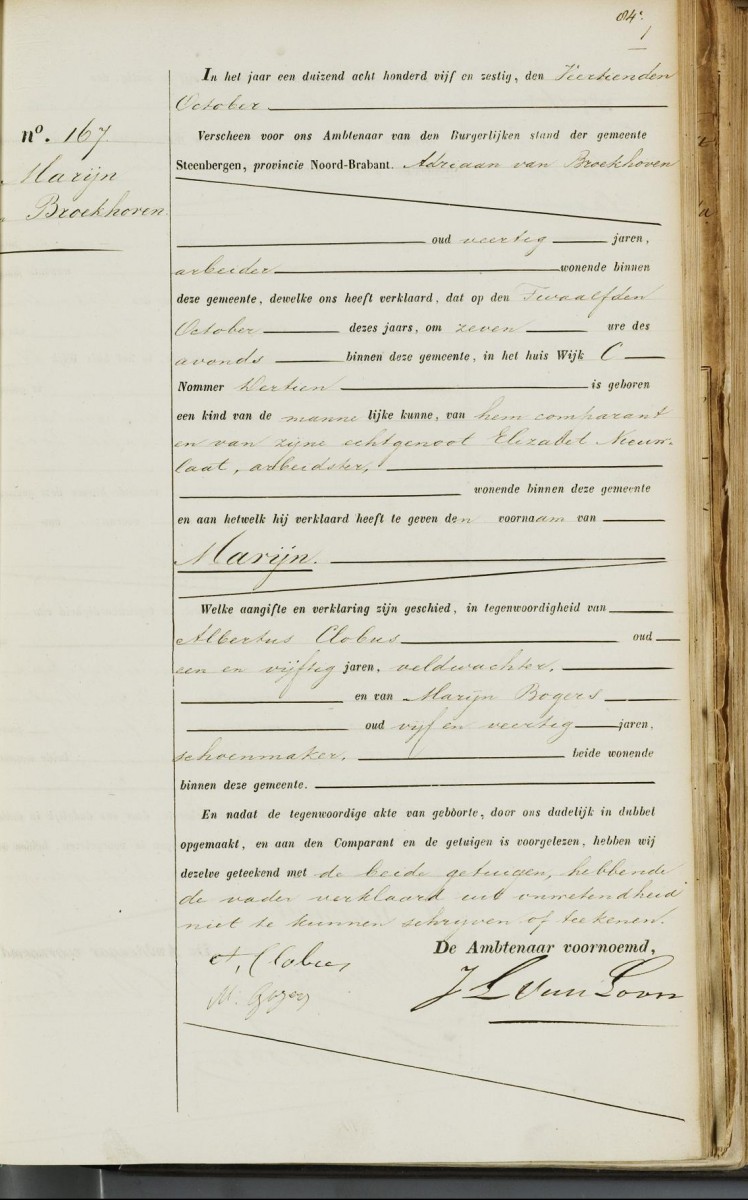 84.
1
nº. 167
Marijn
Broekhoven.
In het jaar een duizend acht honderd vijf en zestig, den Veertienden
October
Verscheen voor ons Ambtenaar van den Burgerlijken stand der gemeente
Steenbergen, provincie Noord-Brabant. Adriaan van Broekhoven
oud veertig jaren,
arbeider wonende binnen
deze gemeente, dewelke ons heeft verklaard, dat op den Twaalfden
October dezes jaars, om zeven ure des
avonds binnen deze gemeente, in het huis Wijk C
Nommer Dertien is geboren
een kind van de mannelijke kunne, van hem comparant
en van zijne echtgenoot Elizabet Nieuw-
laat, arbeidster,
wonende binnen deze gemeente
en aan hetwelk hij verklaard heeft te geven den voornaam van
Marijn.
Welke aangifte en verklaring zijn geschied, in tegenwoordigheid van
Albertus Clobus oud
een en vijftig jaren, veldwachter,
en van Marijn Bogers
oud vijf en veertig jaren,
schoenmaker, beide wonende
binnen deze gemeente.
En nadat de tegenwoordige akte van geboorte, door ons dadelijk in dubbel
opgemaakt, en aan den Comparant en de getuigen is voorgelezen, hebben wij
dezelve geteekend met de beide getuigen, hebbende
de vader verklaard uit onwetendheid
niet te kunnen schrijven of teekenen.
De Ambtenaar voornoemd,
A. Clobus
M. Bogers
J L van Loon